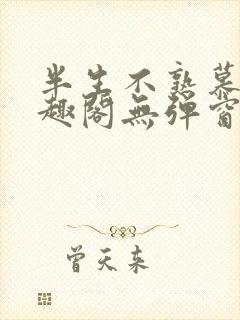 半生不熟慕
趣阁無弹窗
曾天来